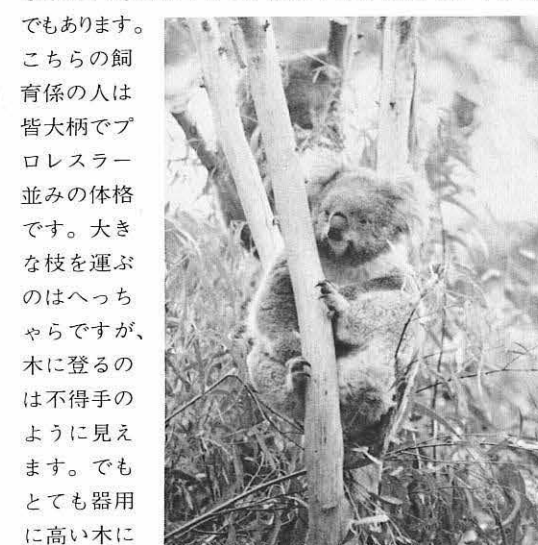 でもあります。
こちらの飼
育係の人は
皆大柄でプ
ロレスラー
並みの体格
です。大き
な枝を運ぶ
のはへっち
ゃらですが、
木に登るの
は不得手の
ように見え
ます。でも
とても器用
に高い木に